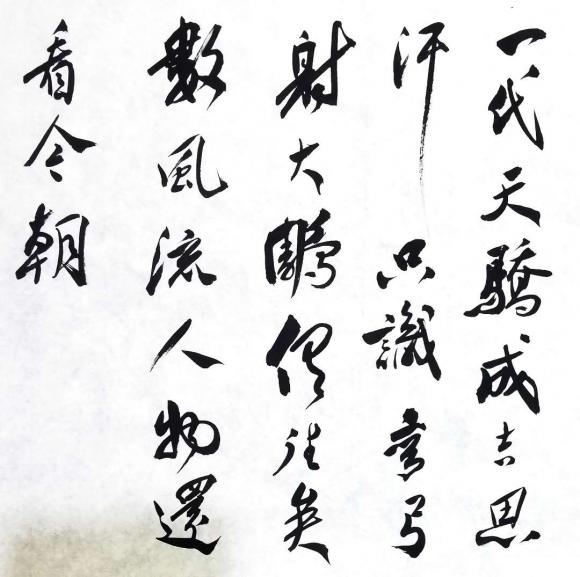 一代天驕成吉思
汗只識弯弓
射大鵰俱往矣
數風流人物還
看今朝